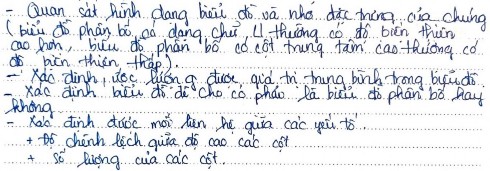 - Quan sát hình dạng biểu đồ và nhớ đặc trưng của chúng
(biểu đồ phân bố có dạng chữ U thường có độ biến thiên
cao hơn, biểu đồ phân bố có cột trung tâm cao thường có
độ biến thiên thấp).
- Xác định, ước lượng được giá trị trung bình trong biểu đồ.
- Xác định biểu đồ đề cho có phải là biểu đồ phân bố hay
không
- Xác định được mối liên hệ giữa các yếu tố.
+ Độ chênh lệch giữa độ cao các cột
+ Số lượng của các cột.